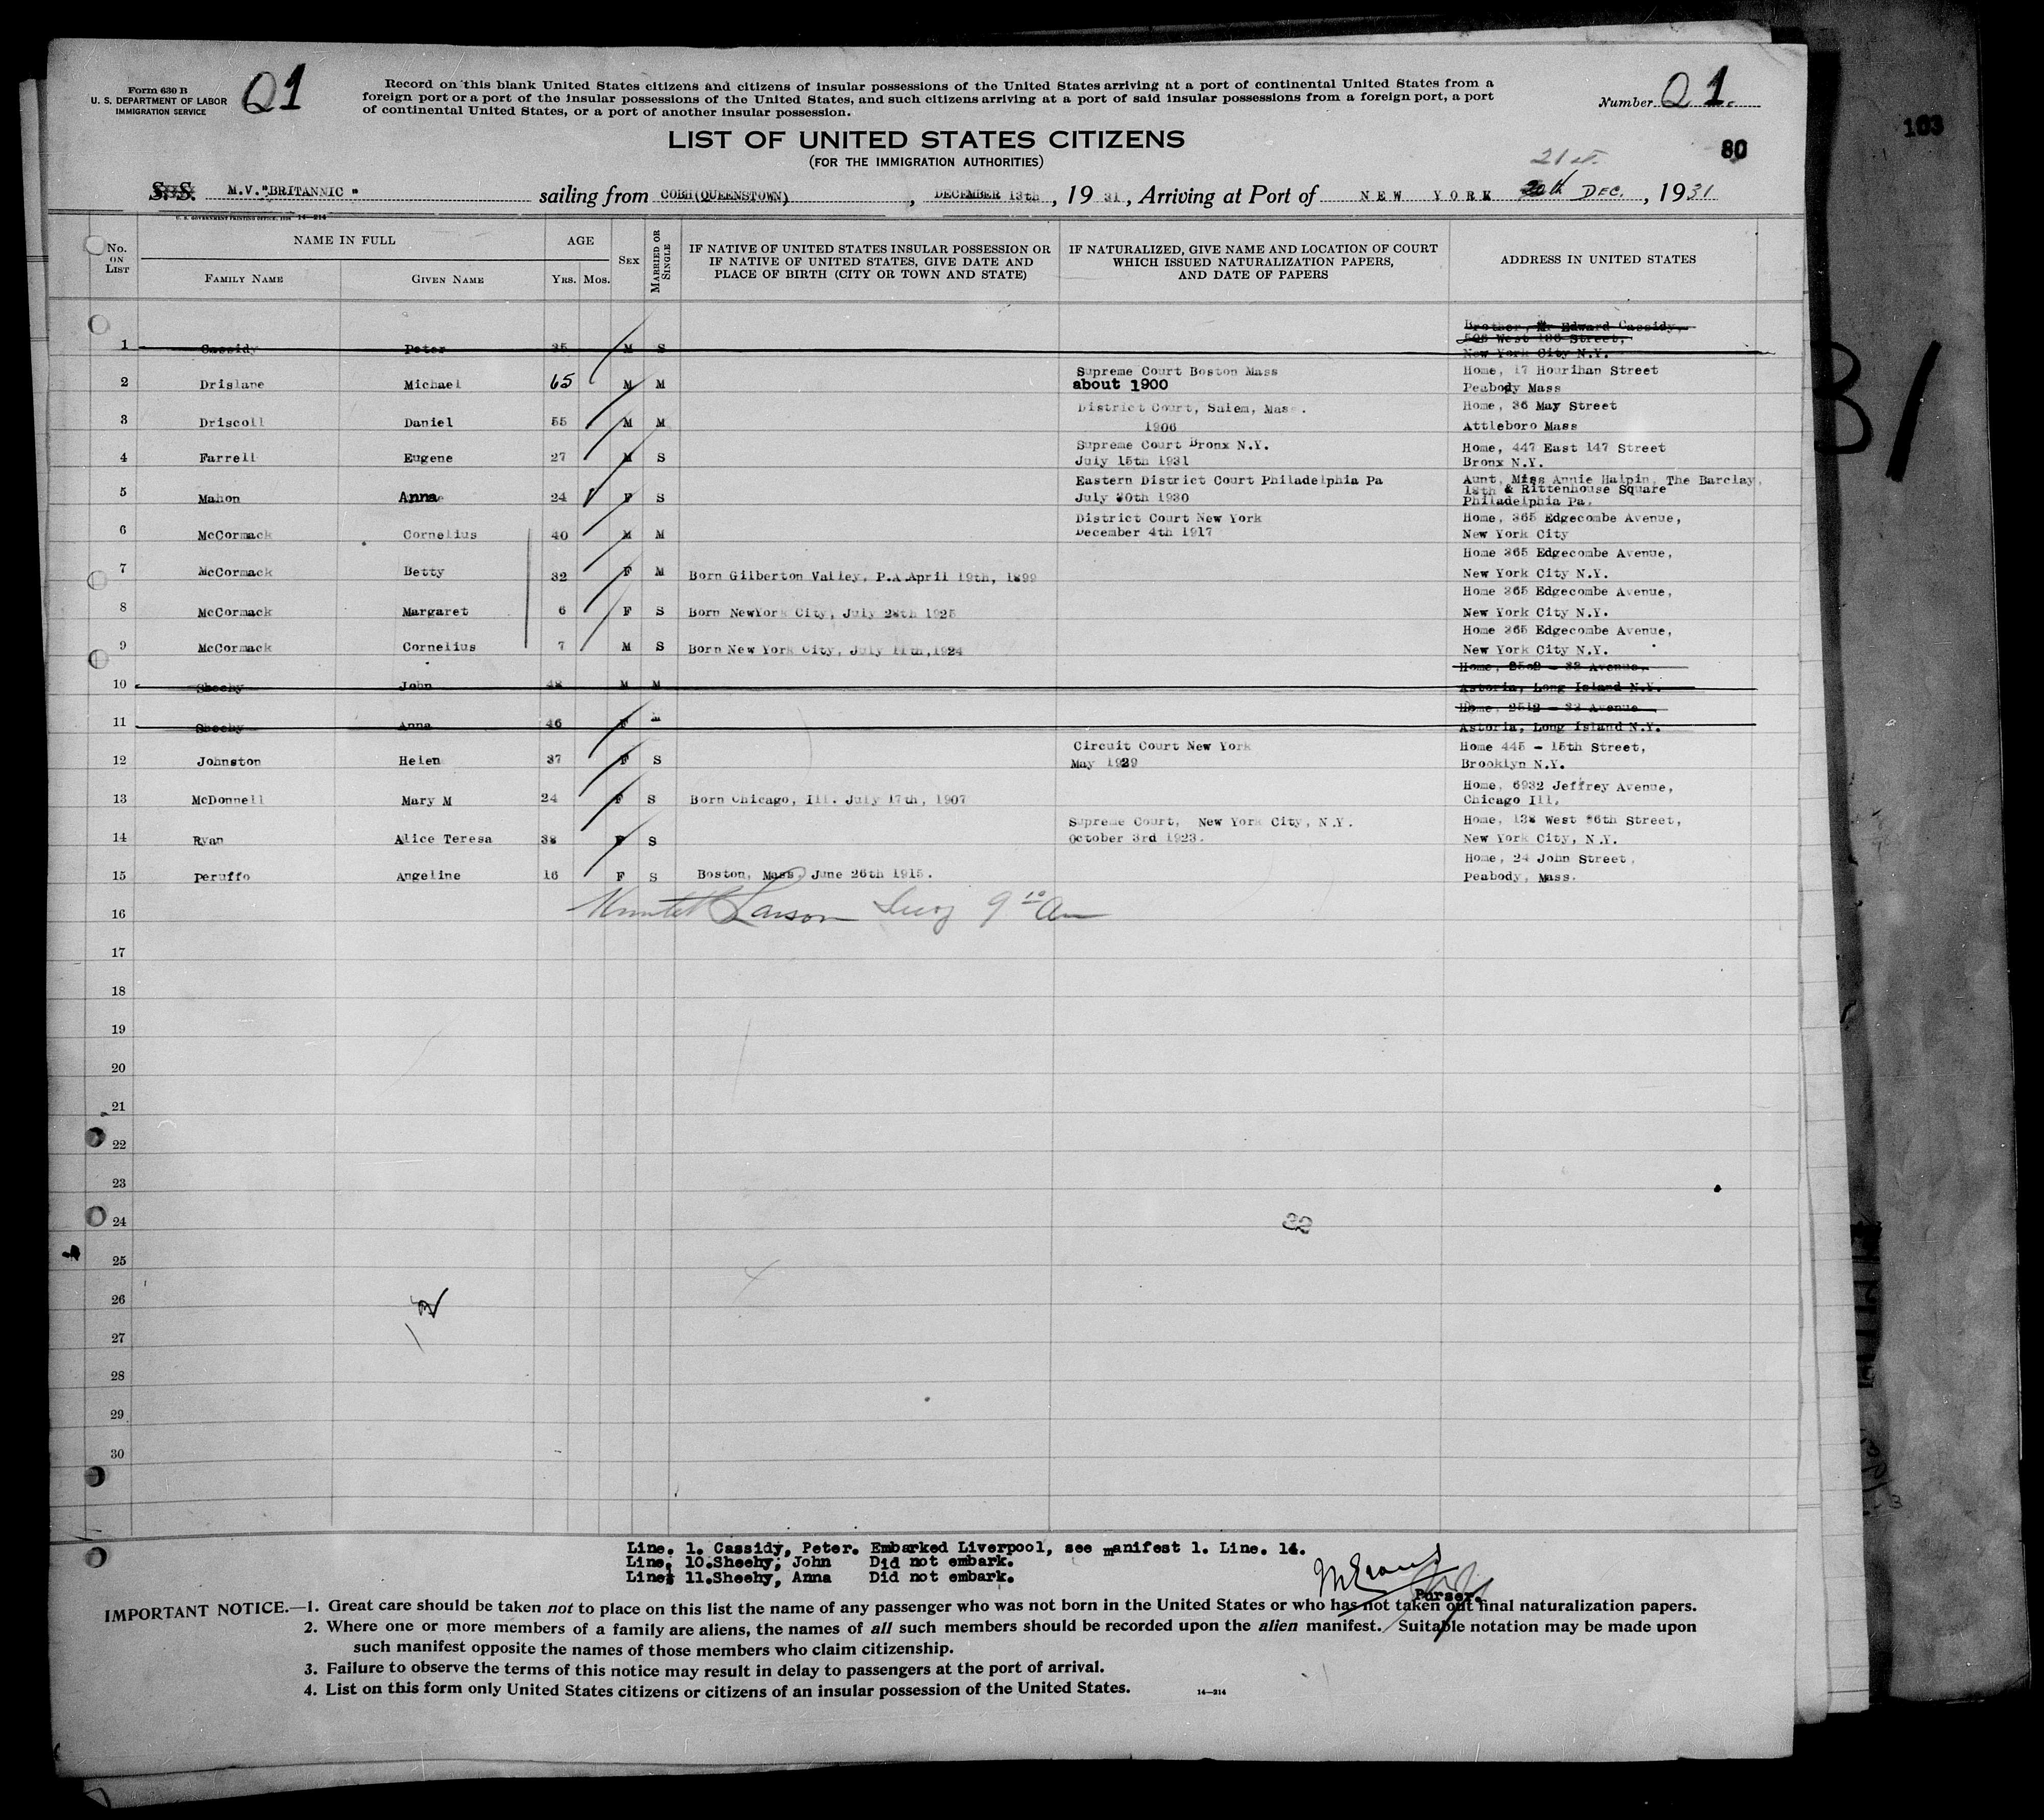 Form 630 B
U. S. DEPARTMENT OF LABOR
IMMIGRATION SERVICE
Q1
Record on this blank United States citizens and citizens of insular possessions of the United States arriving at a port of continental United States from a
foreign port or a port of the insular possessions of the United States, and such citizens arriving at a port of said insular possessions from a foreign port, a port
of continental United States, or a port of another insular possession.
Number Q 1
103
LIST OF UNITED STATES CITIZENS
(FOR THE IMMIGRATION AUTHORITIES)
80
21st
S. S. M.V."BRITANNIC" sailing from COBH(QUEENSTOWN), DECEMBER 13th, 1931, Arriving at Port of NEW YORK 20th DEC., 1931
No. ON LIST
NAME IN FULL
FAMILY NAME GIVEN NAME
AGE
YRS. MOS.
SEX
MARRIED OR SINGLE
IF NATIVE OF UNITED STATES INSULAR POSSESSION OR
IF NATIVE OF UNITED STATES, GIVE DATE AND
PLACE OF BIRTH (CITY OR TOWN AND STATE)
IF NATURALIZED, GIVE NAME AND LOCATION OF COURT
WHICH ISSUED NATURALIZATION PAPERS,
AND DATE OF PAPERS
ADDRESS IN UNITED STATES
Brother, Mr Edward Cassidy,
West Street,
1 Cassidy Peter 35 M S New York City N.Y.
Supreme Court Boston Mass Home, 17 Hourihan Street
2 Drislane Michael 65 M M about 1900 Peabody Mass
District Court, Salem, Mass. Home, 36 May Street
3 Driscoll Daniel 55 M M 1906 Attleboro Mass
Supreme Court Bronx N.Y. Home, 447 East 147 Street
4 Farrell Eugene 27 M S July 15th 1931 Bronx N.Y.
Eastern District Court Philadelphia Pa Aunt, Miss Annie Halpin, The Barclay,
18th & Rittenhouse Square
5 Mahon Anna 24 F S July 30th 1930 Philadelphia Pa.
District Court New York Home, 365 Edgecombe Avenue,
6 McCormack Cornelius 40 M M December 4th 1917 New York City
Home 365 Edgecombe Avenue,
7 McCormack Betty 32 F M Born Gilberton Valley, P.A.April 19th, 1899 New York City N.Y.
Home 365 Edgecombe Avenue,
8 McCormack Margaret 6 F S Born NewYork City, July 28th 1925 New York City N.Y.
Home 365 Edgecombe Avenue,
9 McCormack Cornelius 7 M S Born New York City, July 11th,1924 New York City N.Y.
Home, - 33 Avenue.
10 Sheehy John 48 M M Astoria, Long Island N.Y.
Home, 2512 - 33 Avenue
11 Sheehy Anna 46 F M Astoria, Long Island N.Y.
Circuit Court New York Home 445 - 15th Street,
12 Johnston Helen 37 F S May 1929 Brooklyn N.Y.
Home, 6932 Jeffrey Avenue,
13 McDonnell Mary M 24 F S Born Chicago, Ill. July 17th, 1907 Chicago Ill.
Supreme Court, New York City, N.Y. Home, 138 West 86th Street,
14 Ryan Alice Teresa 38 F S October 3rd 1923. New York City, N.Y.
Home, 24 John Street,
15 Peruffo Angeline 16 F S Boston, Mass, June 26th 1915. Peabody, Mass.
16 Larson 9 10 Am
17
18
19
20
21
22
23
24
25
26
27
28
29
30
Line. 1. Cassidy, Peter. Embarked Liverpool, see manifest 1. Line. 14.
Line, 10.Sheehy, John Did not embark.
Line, 11.Sheehy, Anna Did not embark.
Purser.
IMPORTANT NOTICE.—1. Great care should be taken not to place on this list the name of any passenger who was not born in the United States or who has not taken out final naturalization papers.
2. Where one or more members of a family are aliens, the names of all such members should be recorded upon the alien manifest. Suitable notation may be made upon
such manifest opposite the names of those members who claim citizenship.
3. Failure to observe the terms of this notice may result in delay to passengers at the port of arrival.
4. List on this form only United States citizens or citizens of an insular possession of the United States.
14—214